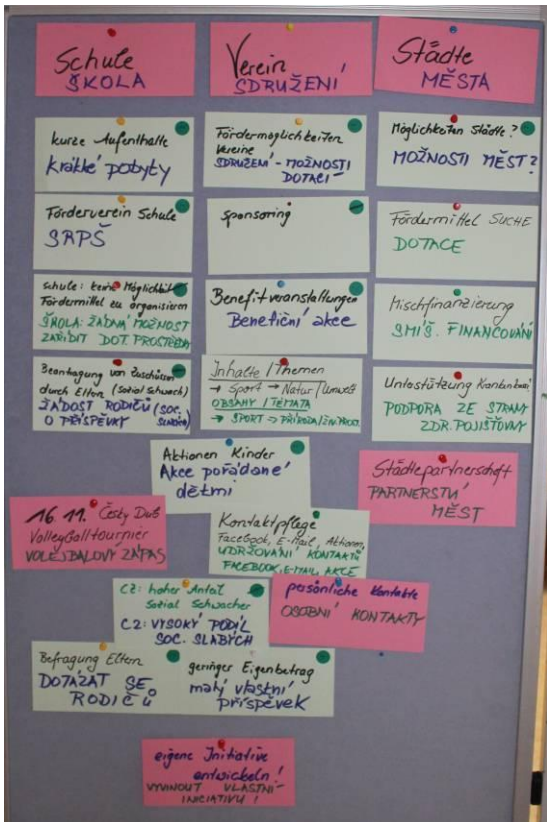 Schule
ŠKOLA
kurze Aufenthalte
krátké pobyty
Förderverein Schule
SRPŠ
schule: keine Möglichkeit
Fördermittel zu organisieren
ŠKOLA: ŽÁDNÁ MOŽNOST
ZAŘÍDIT DOT. PROSTŘEDKY
Beantragung von Zuschüssen
durch Eltern (Sozial Schwach)
ŽÁDOST RODIČŮ (SOC.
O PŘÍSPĚVKY
Verein
SDRUŽENÍ
Fördermöglichkeiten
Vereine
SDRUŽENÍ - MOŽNOSTI
DOTACÍ
sponsoring
Benefitveranstaltungen
Benefiční akce
Inhalte / Themen
→ Sport → Natur / Umwelt
OBSAHY / TÉMATA
→ SPORT → PŘÍRODA
Städte
MĚSTA
Möglichkeiten Städte?
MOŽNOSTI MĚST?
Fördermittel SUCHE
DOTACE
Mischfinanzierung
SMÍŠ. FINANCOVÁNÍ
Unterstützung
PODPORA ZE STRANY
ZDR. POJIŠŤOVNY
Aktionen Kinder
Akce pořádané
dětmi
Städtepartnerschaft
PARTNERSTVÍ
MĚST
16. 11. Český Dub
Volleyballtournier
VOLEJBALOVÝ ZÁPAS
Kontaktpflege
Facebook, E-Mail, Aktionen,
UDRŽOVÁNÍ KONTAKTŮ
FACEBOOK, E-MAIL, AKCE
CZ: hoher Anteil
Sozial Schwacher
CZ: VYSOKÝ PODÍL
SOC. SLABÝCH
persönliche Kontakte
OSOBNÍ KONTAKTY
Befragung Eltern
DOTÁZAT SE
RODIČŮ
geringer Eigenbetrag
malý vlastní
příspěvek
eigene Initiative
entwickeln!
VYVINOUT VLASTNÍ
INICIATIVU!